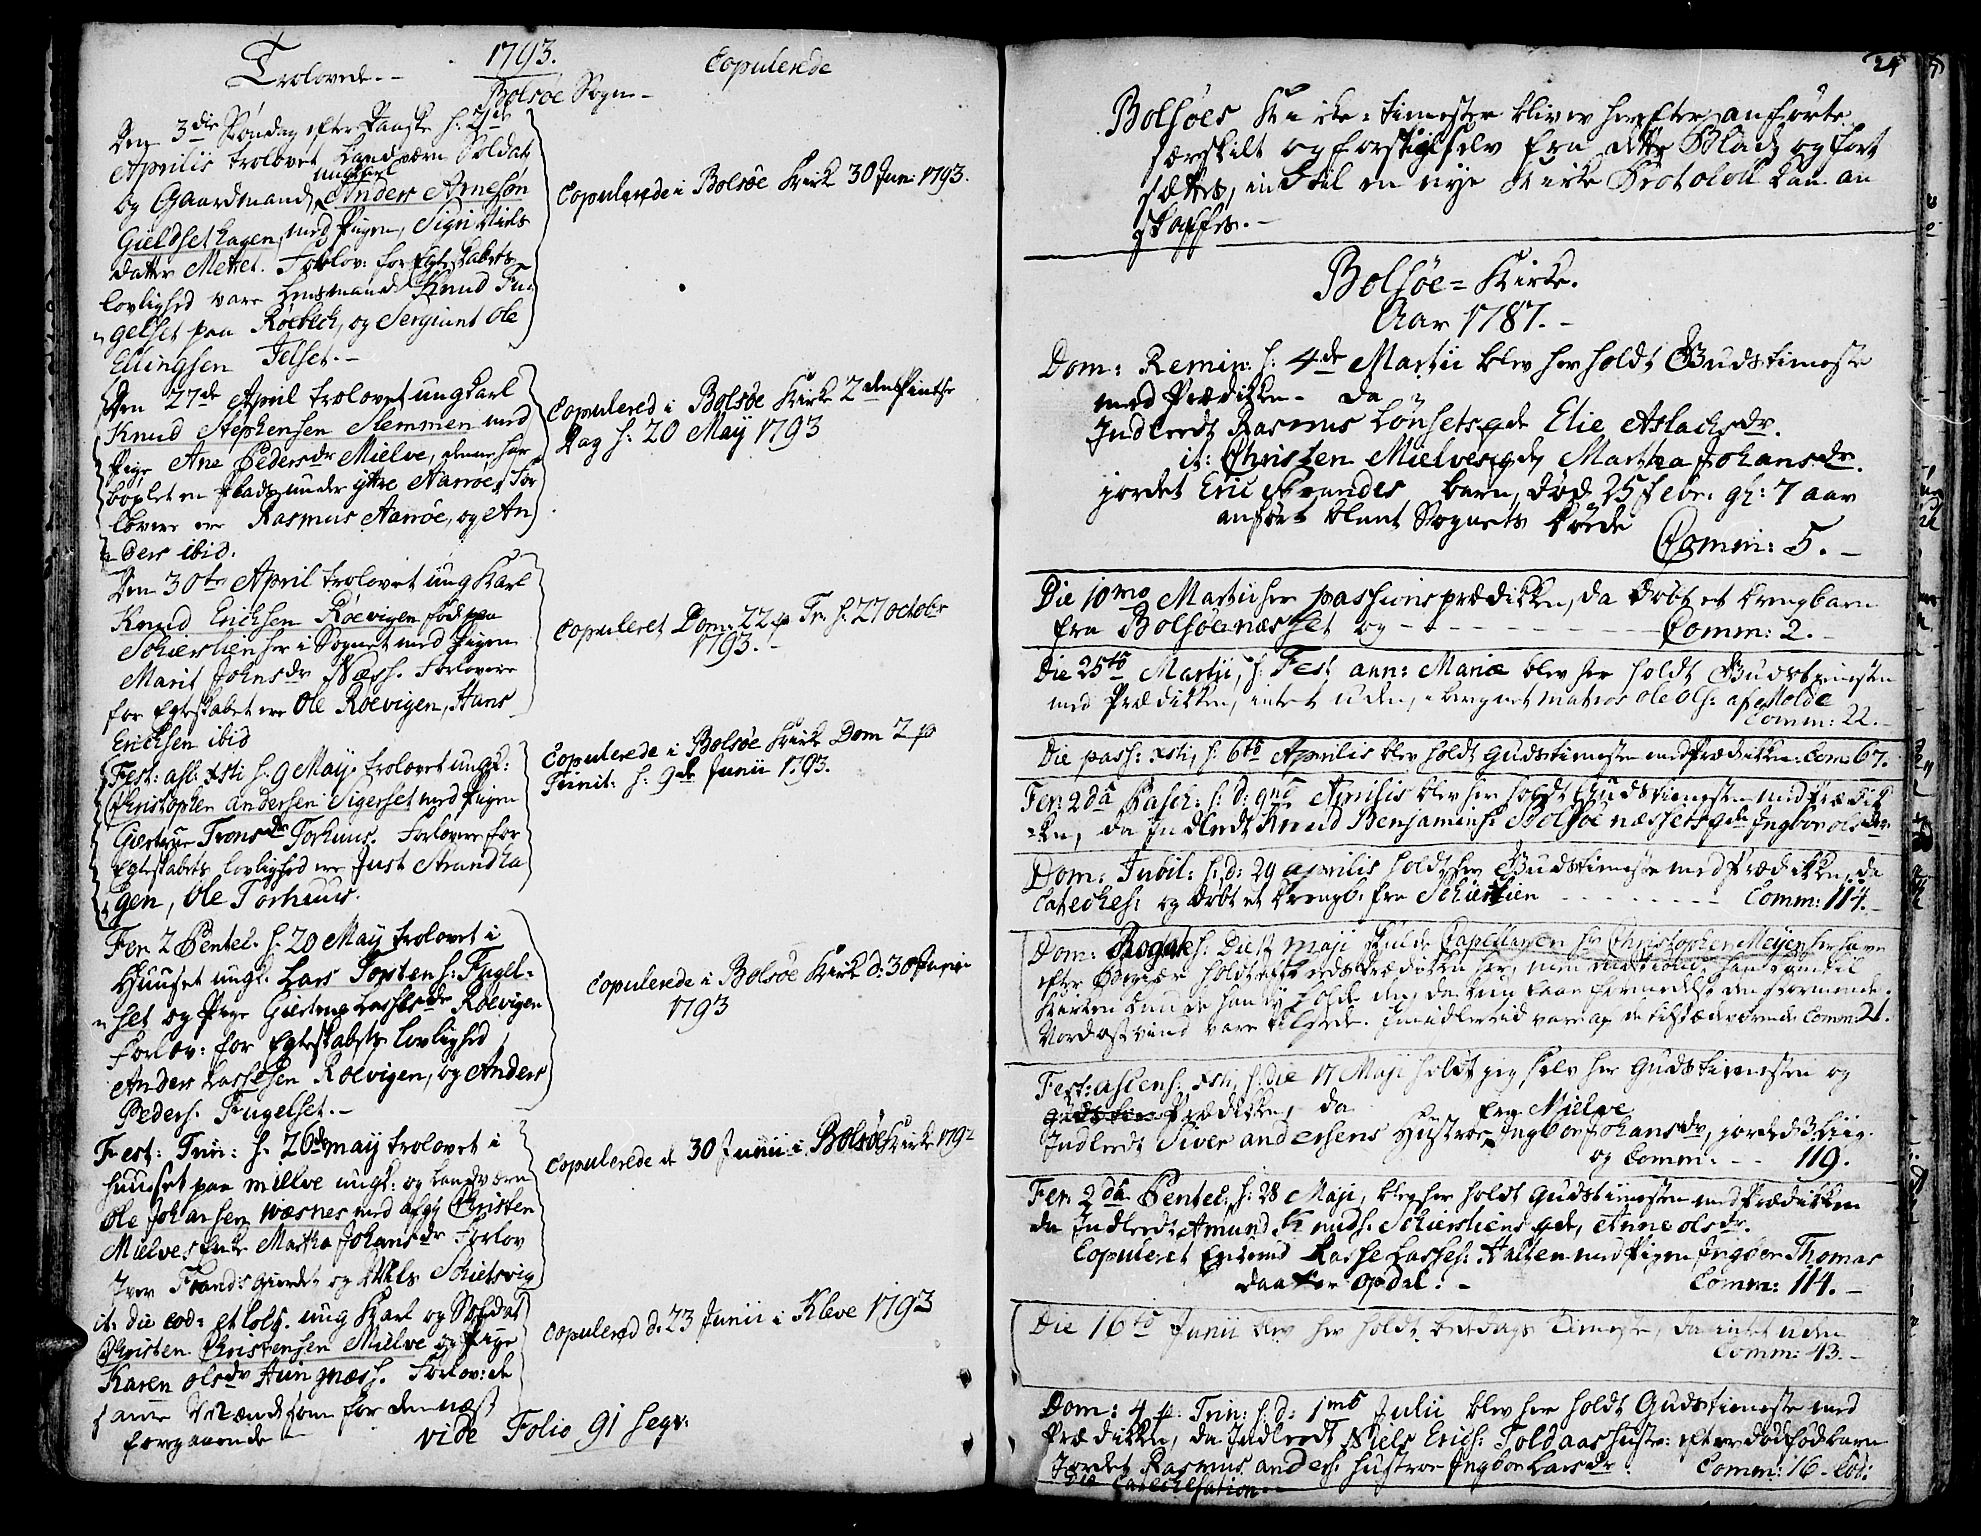 Trolovede.- 1793. Copulerede
Bolsøe Sogn-
Den 3die Søndag efter Paaske h: 21de
Aprilis trolovet Landværn Soldat
ungkarl
og Gaardmand, Anders Arnesøn
Gieldset hagen, med Pigen, Sigri Niels
datter Metret. Forlov: for Egteskabets
lovlighed vare Lensmand Knud Fu
gelset paa Røebech, og Sergiant Ole
Ellingsen Felset.-
Copulerede i Bolsøe Kirke 30 Jun: 1793.
Den 27de April trolovet ungkarl
Knud Stephensen Slemmen med
Pige Ane Pedersdr Mielve, denne har
boplet en Plads under ytre Aarøe, For
lovere ere Rasmus Aarøe, og An
ders ibid.
Copulered i Bolsøe Kirke 2den Pintse
Dag h: 20 Maij 1793
Den 30te April trolovet ung Karl
Knud Erichsen Røevigen fød paa
Schierstien her i Sognet med Pigen
Marit Johnsdr Næss. Forlovere
for Egteskabet ere Ole Roevigen, Hans
Erichsen ibid
Copuleret Dom: 22 p Tr: h: 27 octobr
1793.-
Fest: asc: xsti h. 9 May. trolovet ungk:
Christopher andersen Sigerset med Pigen
Giertrue Tronsdr Torhuus. Forlovere for
Egteskabets lovlighed ere Just Strandha
gen, Ole Torhuus.
Copulerede i Bolsøe Kirke Dom 2 p
Trinit: h: 9de Junii 1793.
Fer 2 Pentec. h. 20 May trolovet i
Huuset ungk. Lars Torstens: Fugel-
set og Pige Giertrue Lassesdr Roevigen
Forlov: for Egteskabets lovlighed
Anders Lassesen Roevigen, og Anders
Peders. Fugelset.-
Copulerede i Bolsøe Kirk d: 30 Junii
1793
Fest: Trin: h. 26de may trolovet i
huuset paa mielve ungk: og Landværn
Ole Johansen Næsnes med afg: Christen
Mielves Enke Martha Johansdr Forlov
Iver Frænds Giordet og Niels Schietsvig
Copulerede d 30 Junii i Bolsøe Kirke 1792
it: die eod: et loco. ung Karl og Soldat
Christen Christensen Mielve og Pige
Karen olsdr Hungnæss. Forlov: de
samme Mænd som for den næst
forgaaende -
Copulered d: 23 Junii i Kleve 1793
vide Folio 91 seqv:
24
Bolsøes Kirke-tienester bliver herefter anførte
særskilt og forskiel selv fra dette Blad og fort
sættes, indtil en nye Kirke Protokoll kan an
skaffes.-
Bolsøe=Kirke.
Aar 1787.-
Dom: Remin: h: 4de Martii blev her holdt Gudstieneste
med Prædikken- da
Indleedt Rasmus Lønsets qde Elie Aslachsdr.
it: Christen Mielves qde Martha Johansdr.
jordet Eric Strandes barn, død 25 febr: gl: 7 aar
anført blant Sognets døde
Comm: 5.-
Die 10mo Martii her passions prædikken, da døbt et Drengbarn
fra Bolsøenæsset og - - - - - - Comm: 2.-
Die 25to Martii, h: Fest ann: Mariæ blev her holdt Gudstienesten
med Prædikken, intet uden, begravet matros Ole Ols: af Molde
Comm: 22.-
Die pass: xsti, h: 6to Aprilis blev holdt Gudstieneste med Prædikken. Com: 67.
Fer: 2da Pasch: h: d: 9no Aprilis blev her holdt Gudstienesten med Prædik
ken, da Indleedt Knud Benjamins: Bolsøe næssets qde Ingbor olsdr
Dom: Jubil: h: d: 29 aprilis holdt her Gudstieneste med Prædikken, da
Cateches: og døbt et Drengb: fra Schierstien - - - - Comm: 114.-
Dom: Rogate h: Die 13 maji skulde Capellanen hr Christopher Meyer her have
efter Ordre holdt Prædikken her, men
kirken kunde han ei holde den, da den formedelst den stormende
Nordost vind vare tilstede. Imidlertid vare af de tilstædeværende Comm: 21.
Fest: ascens: xsti, h: die 17 Maji holdt jeg selv her Gudstienesten og
Prædikken, da
fra Mielve
Indleedt Siver andersens Hustroe Ingbor Johansdr, jorded 3 Liig.
og Comm: - - 119.
Fer: 2da Pentec: h: 28 Maji, blev her holdt Gudstienesten med Prædikken
da Indleedt Amund Knuds: Schierstiens qde, Anne olsdr.
Copuleret Enkemd Lasse Lasses: Halten med Pigen Ingbor Thomas
daatter Opdal.- Comm: 114.-
Die 16to Junii blev her holdt bededags tieneste, da intet uden
Comm: 43.-
Dom: 4 p. Trin: h: d: 1mo Julii blev her holdt Gudstieneste med
Prædikken, da Indleedt Niels Erichs: Toldaas hustr: efter dødfød barn
Jordet Rasmus anders: hustroe Ingbor Larsdr. Comm: 16. Cod:
die Catechesation